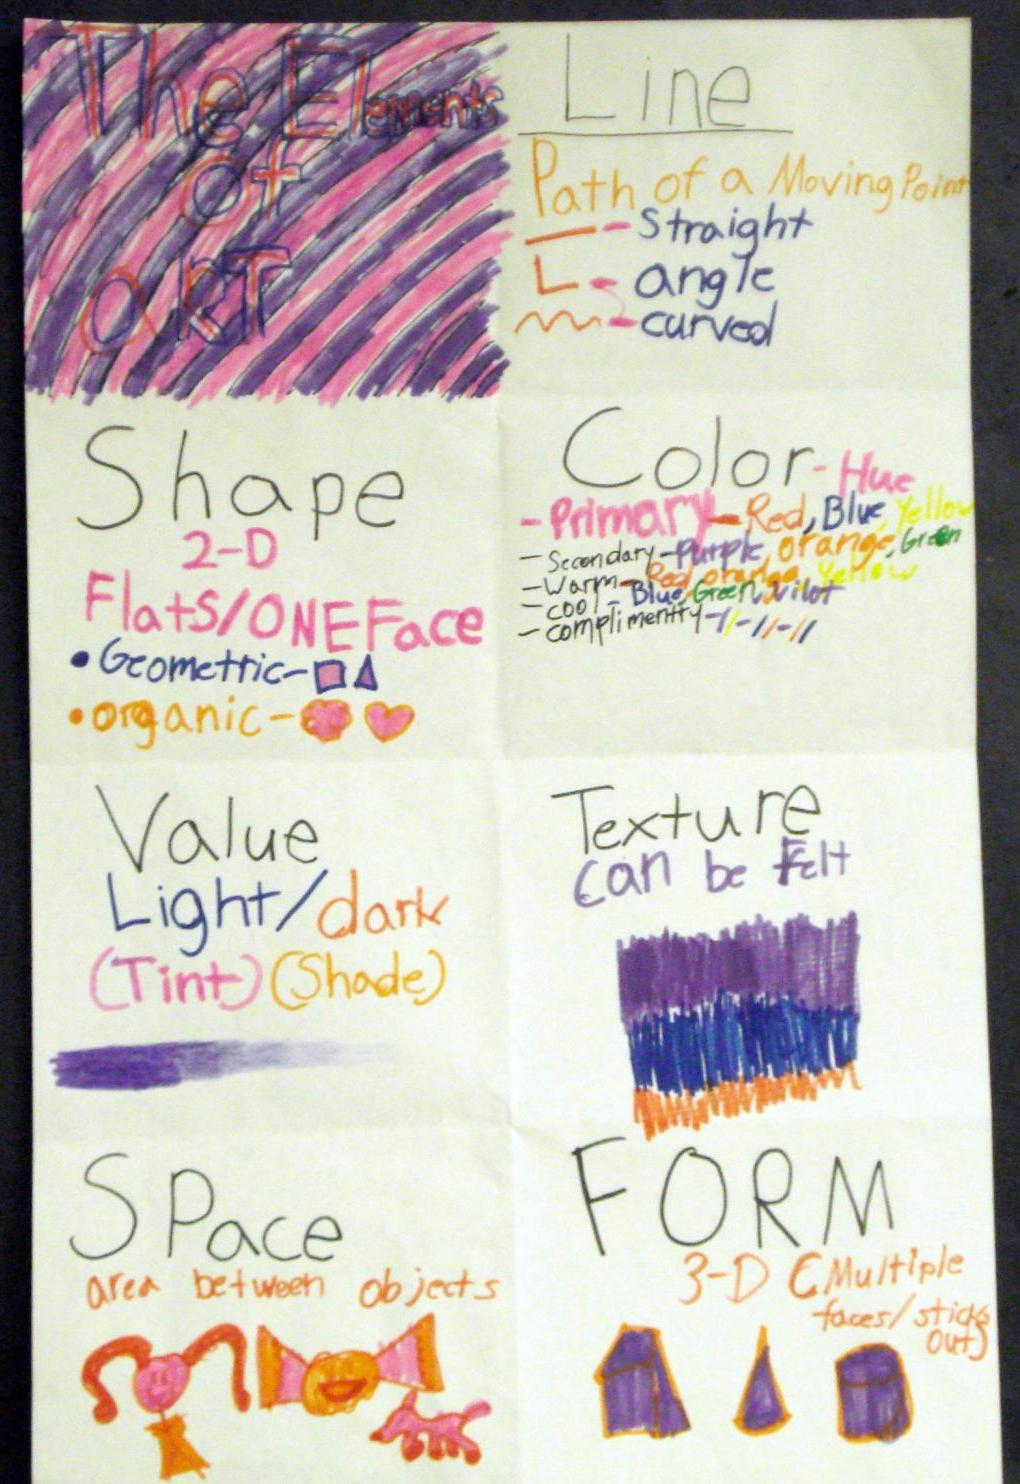 The Elements
Of
ART
Line
Path of a Moving Point
- Straight
L - angle
- curved
Shape
2-D
Flats/ONE Face
• Geometric-
• organic-
Color - Hue
- Primary - Red, Blue, Yellow
- Secondary - Purple, orange, Green
- Warm - Red, orange, Yellow
- cool - Blue, Green, Vilot
- complimentry -
Value
Light/dark
(Tint) (Shade)
Texture
Can be Felt
SPace
area between objects
FORM
3-D (Multiple
faces/sticks
out)